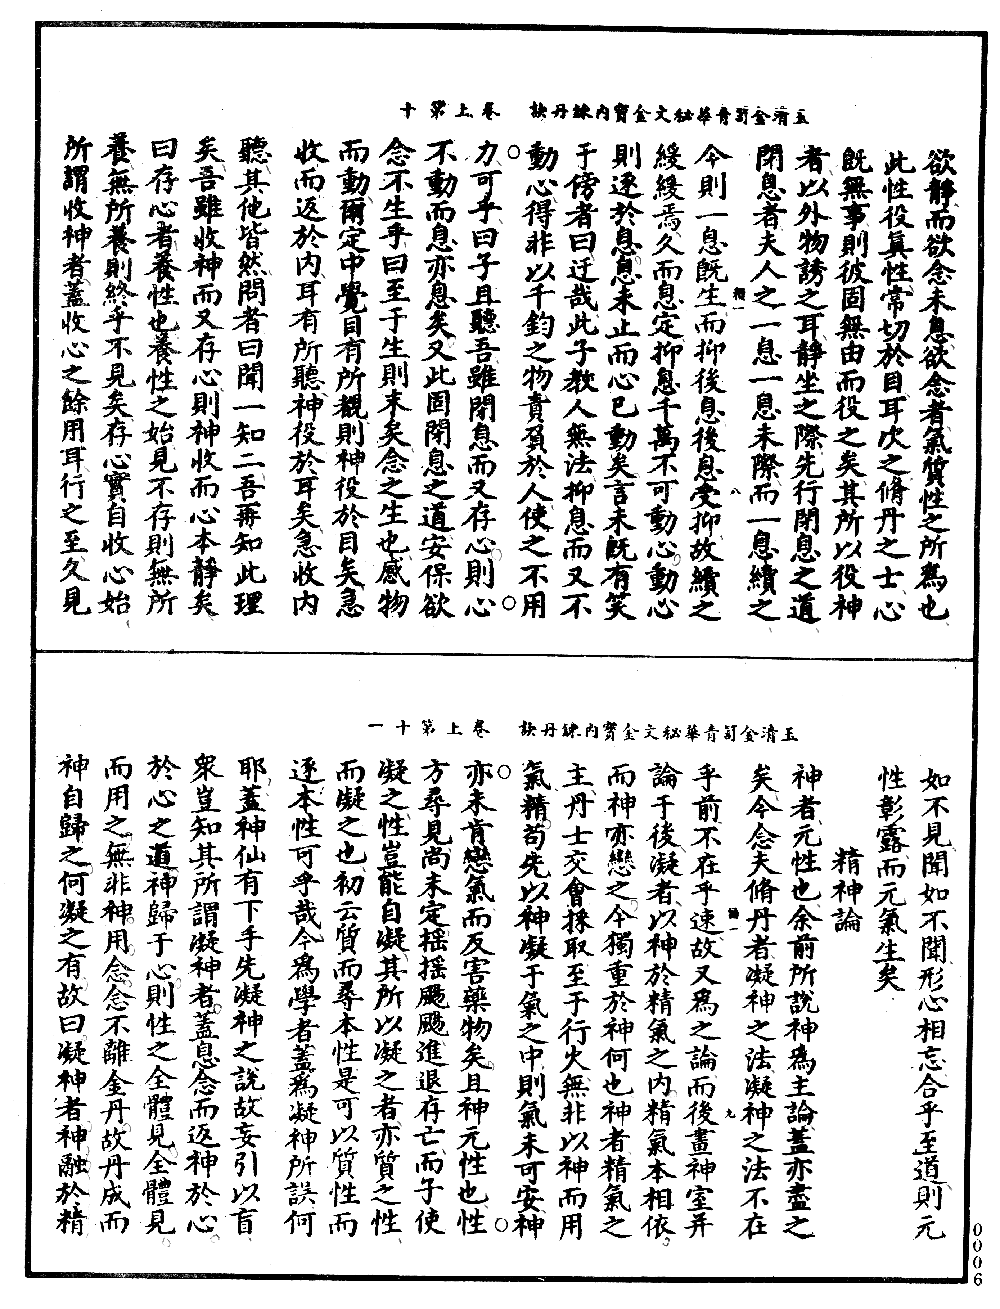 玉清金笥青華秘文金寶內鍊丹訣　卷上第十
欲靜而欲念未息欲念者氣質性之所爲也
此性役眞性常切於目耳次之脩丹之士心
旣無事則彼固無由而役之矣其所以役神
者以外物誘之耳靜坐之際先行閉息之道
閉息者夫人之一息一息未際而一息續之
今則一息旣生而抑後息後息受抑故續之
緩緩焉久而息定抑息千萬不可動心動心
則逐於息息未止而心已動矣言未旣有笑
于傍者曰迂哉此子教人無法抑息而又不
動心得非以千鈞之物責負於人使之不用
力可乎曰子且聽吾雖閉息而又存心則心
不動而息亦息矣又此固閉息之道安保欲
念不生乎曰至于生則末矣念之生也感物
而動爾定中覺目有所觀則神役於目矣急
收而返於內耳有所聽神役於耳矣急收內
聽其他皆然問者曰聞一知二吾再知此理
矣吾雖收神而又存心則神收而心本靜矣
曰存心者養性也養性之始見不存則無所
養無所養則終乎不見矣存心實自收心始
所謂收神者蓋收心之餘用耳行之至久見
玉清金笥青華秘文金寶內鍊丹訣　卷上第十一
如不見聞如不聞形心相忘合乎至道則元
性彰露而元氣生矣
精神論
神者元性也余前所說神爲主論蓋亦盡之
矣今念夫脩丹者凝神之法凝神之法不在
乎前不在乎速故又爲之論而後畫神室幷
論于後凝者以神於精氣之內精氣本相依
而神亦戀之今獨重於神何也神者精氣之
主丹士交會採取至于行火無非以神而用
氣精苟先以神凝于氣之中則氣未可安神
亦未肯戀氣而反害藥物矣且神元性也性
方尋見尚未定搖搖颺颺進退存亡而子使
凝之性豈能自凝其所以凝之者亦質之性
而凝之也初云質而尋本性是可以質性而
逐本性可乎哉今爲學者蓋爲凝神所誤何
耶蓋神仙有下手先凝神之說故妄引以盲
衆豈知其所謂凝神者蓋息念而返神於心
於心之道神歸于心則性之全體見全體見
而用之無非神用念念不離金丹故丹成而
神自歸之何凝之有故曰凝神者神融於精
0006